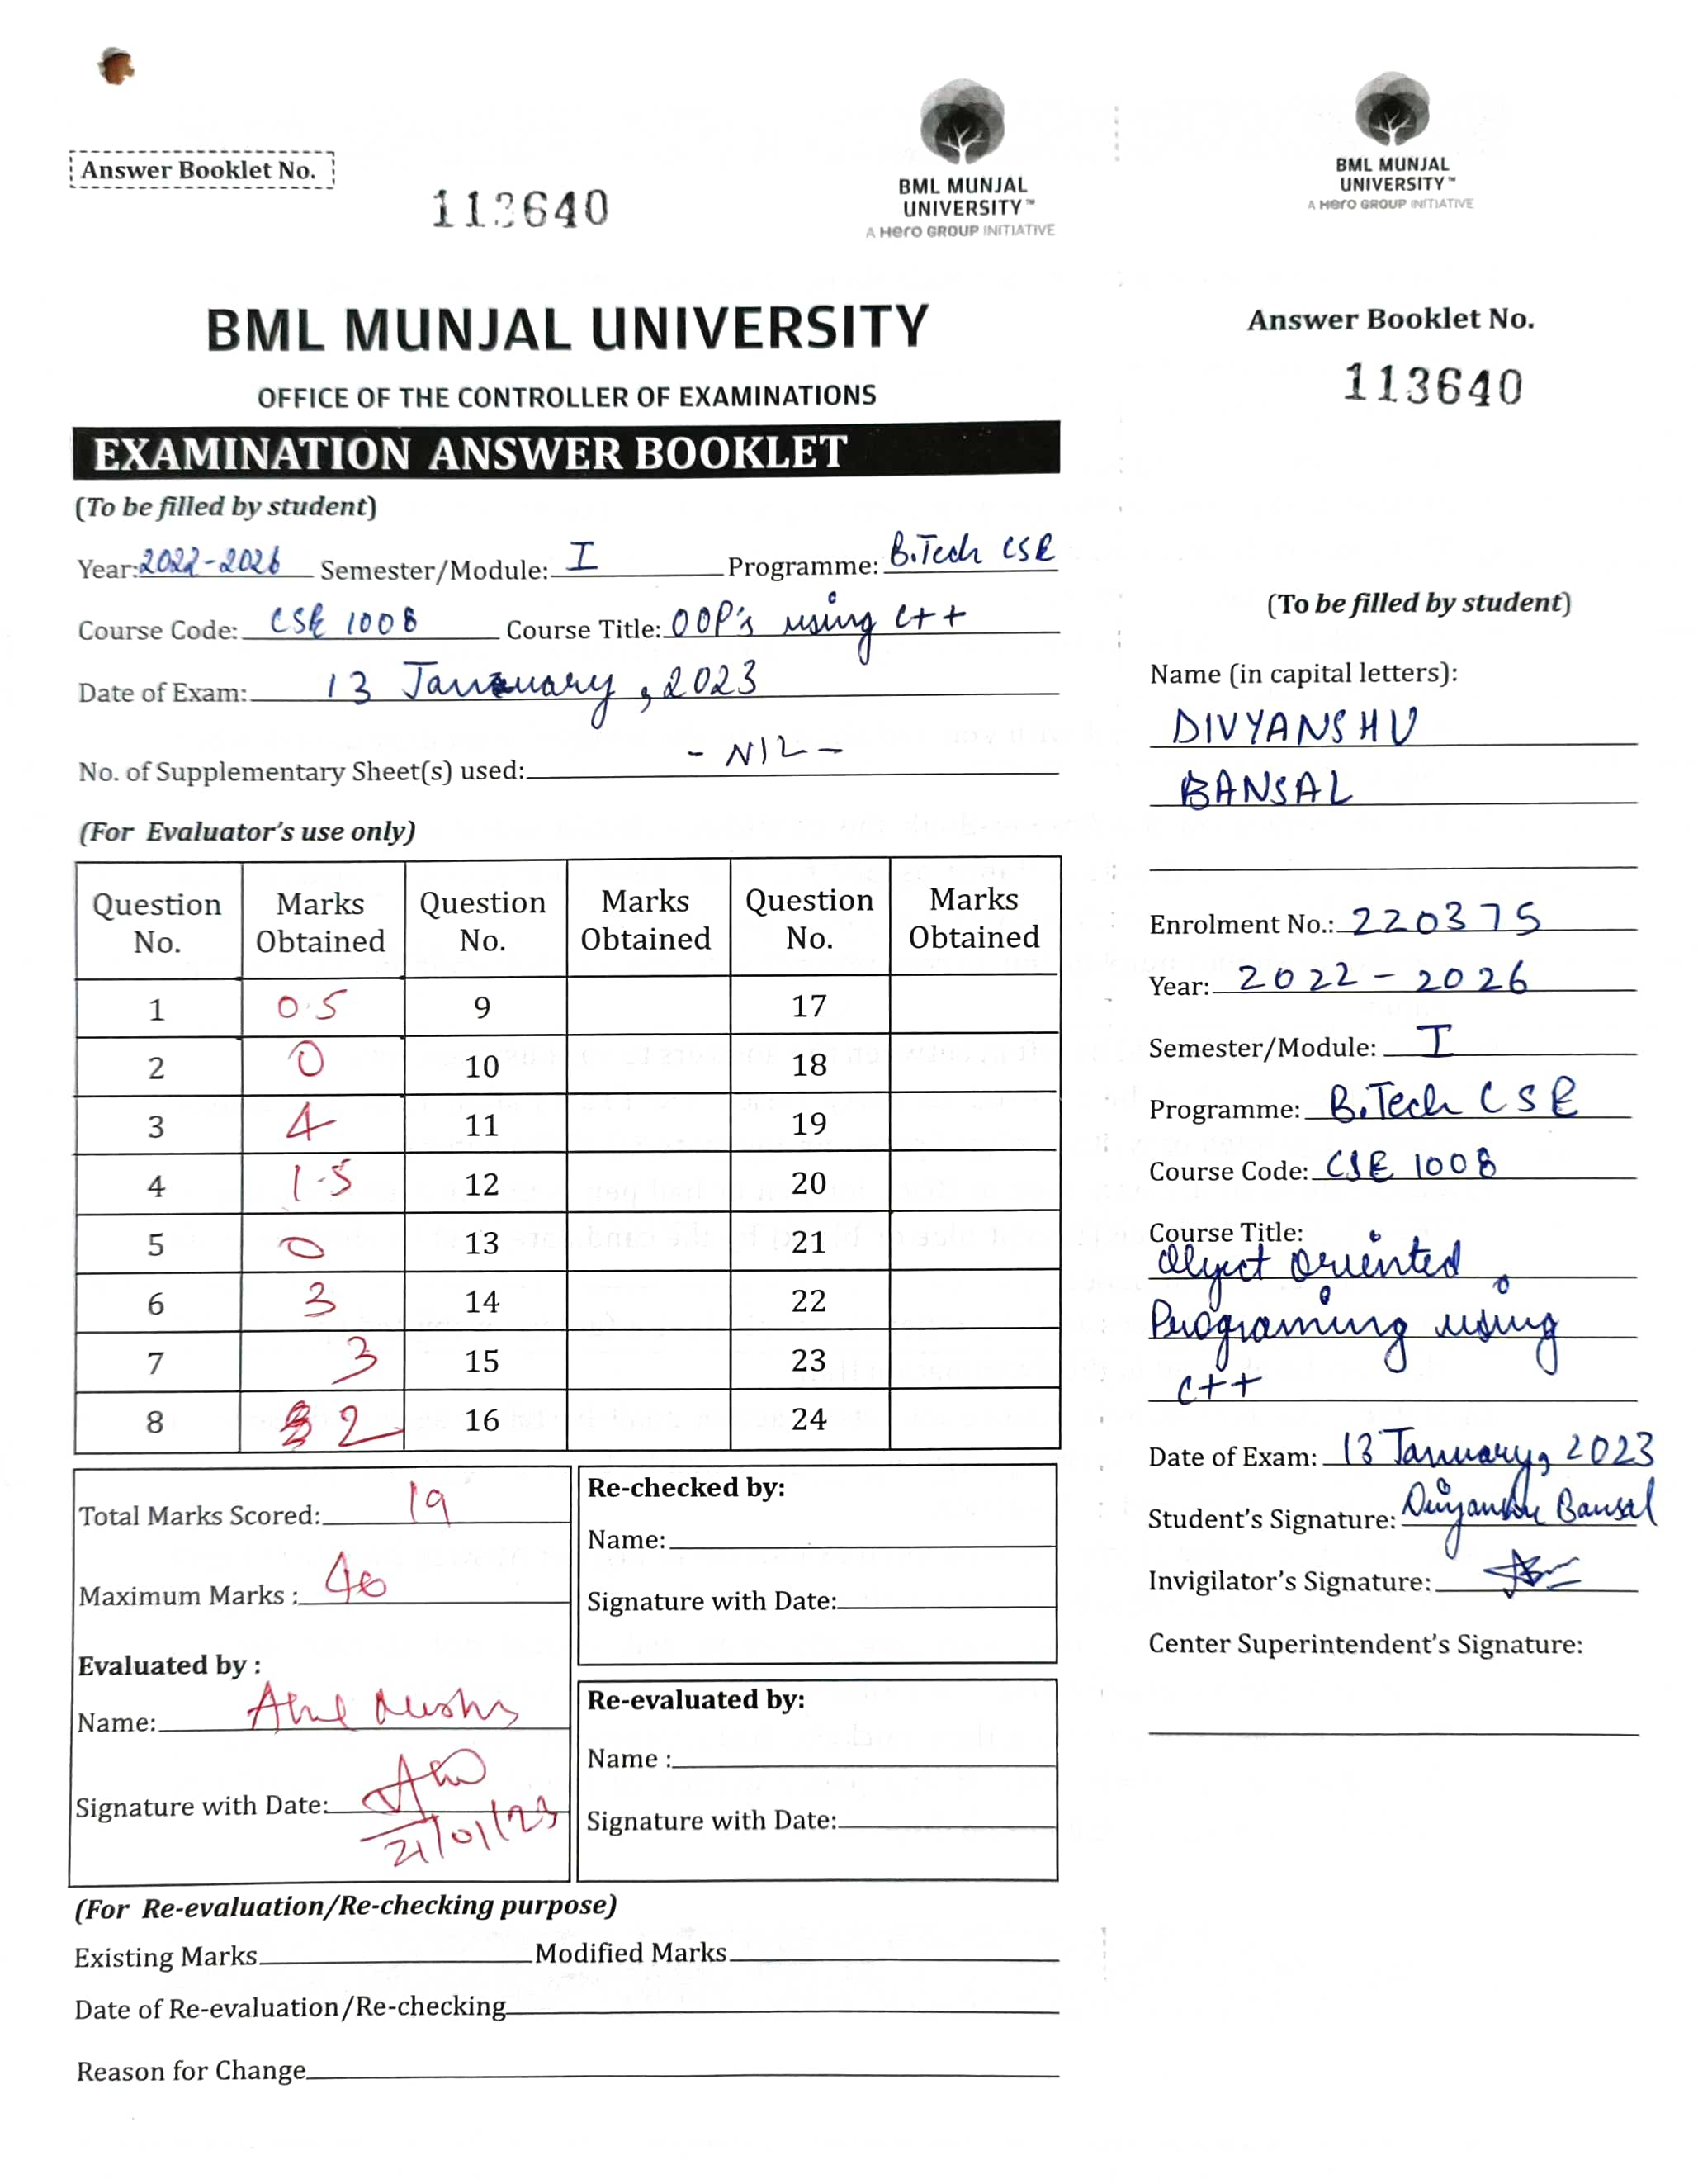 Answer Booklet No.
113640
BML MUNJAL
UNIVERSITY™
A Hero GROUP INITIATIVE
BML MUNJAL UNIVERSITY
OFFICE OF THE CONTROLLER OF EXAMINATIONS
EXAMINATION ANSWER BOOKLET
(To be filled by student)
Year: 2022-2026 Semester/Module: I Programme: B.Tech CSE
Course Code: CSE 1008 Course Title: OOP's using C++
Date of Exam: 13 January, 2023
No. of Supplementary Sheet(s) used: - NIL -
(For Evaluator's use only)
Question No. Marks Obtained Question No. Marks Obtained Question No. Marks Obtained
1 0.5 9 17
2 0 10 18
3 4 11 19
4 1.5 12 20
5 0 13 21
6 3 14 22
7 3 15 23
8 2 16 24
Total Marks Scored: 19
Maximum Marks : 40
Evaluated by :
Name:
Signature with Date: 21/01/23
Re-checked by:
Name:
Signature with Date:
Re-evaluated by:
Name :
Signature with Date:
(For Re-evaluation/Re-checking purpose)
Existing Marks Modified Marks
Date of Re-evaluation/Re-checking
Reason for Change
BML MUNJAL
UNIVERSITY™
A Hero GROUP INITIATIVE
Answer Booklet No.
113640
(To be filled by student)
Name (in capital letters):
DIVYANSHU
BANSAL
Enrolment No.: 220375
Year: 2022 - 2026
Semester/Module: I
Programme: B.Tech CSE
Course Code: CSE 1008
Course Title:
Object Oriented
Programing using
C++
Date of Exam: 13 January, 2023
Student's Signature: Divyanshu Bansal
Invigilator's Signature:
Center Superintendent's Signature: